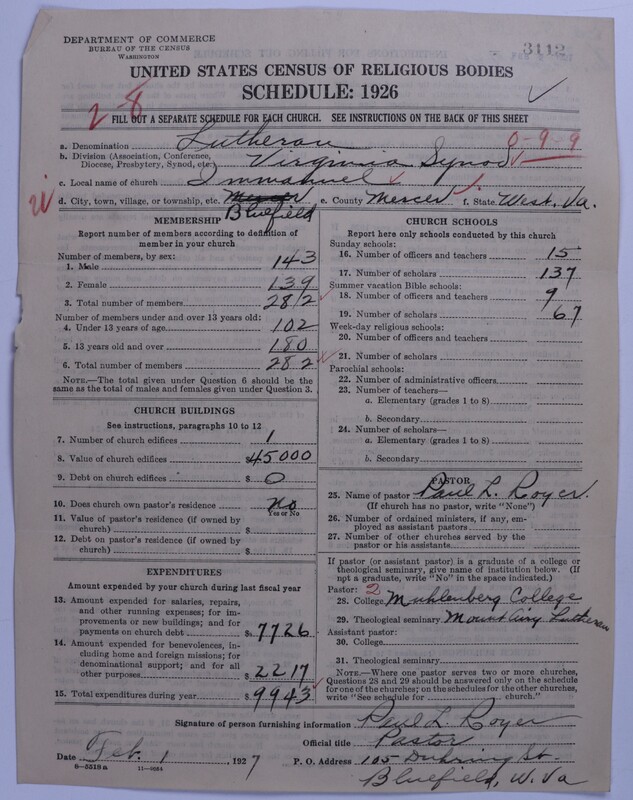 DEPARTMENT OF COMMERCE
BUREAU OF THE CENSUS
WASHINGTON
3112
UNITED STATES CENSUS OF RELIGIOUS BODIES
SCHEDULE: 1926
2-8
FILL OUT A SEPARATE SCHEDULE FOR EACH CHURCH. SEE INSTRUCTIONS ON THE BACK OF THIS SHEET
a. Denomination Lutheran 0-9-9
b. Division (Association, Conference, Diocese, Presbytery, Synod, etc.) Virginia Synod
c. Local name of church Immanuel
d. City, town, village, or township, etc. Mercer Bluefield e. County Mercer f. State West. Va.
MEMBERSHIP
Report number of members according to definition of
member in your church
Number of members, by sex:
1. Male 143
2. Female 139
3. Total number of members 282
Number of members under and over 13 years old:
4. Under 13 years of age 102
5. 13 years old and over 180
6. Total number of members 282
NOTE.—The total given under Question 6 should be the
same as the total of males and females given under Question 3.
CHURCH BUILDINGS
See instructions, paragraphs 10 to 12
7. Number of church edifices 1
8. Value of church edifices $45000
9. Debt on church edifices $ 0
10. Does church own pastor's residence No
Yes or No
11. Value of pastor's residence (if owned by
church) $
12. Debt on pastor's residence (if owned by
church) $
EXPENDITURES
Amount expended by your church during last fiscal year
13. Amount expended for salaries, repairs,
and other running expenses; for im-
provements or new buildings; and for
payments on church debt $ 7726
14. Amount expended for benevolences, in-
cluding home and foreign missions; for
denominational support; and for all
other purposes $ 2217
15. Total expenditures during year $ 9943
CHURCH SCHOOLS
Report here only schools conducted by this church
Sunday schools:
16. Number of officers and teachers 15
17. Number of scholars 137
Summer vacation Bible schools:
18. Number of officers and teachers 9
19. Number of scholars 67
Week-day religious schools:
20. Number of officers and teachers
21. Number of scholars
Parochial schools:
22. Number of administrative officers
23. Number of teachers—
a. Elementary (grades 1 to 8)
b. Secondary
24. Number of scholars—
a. Elementary (grades 1 to 8)
b. Secondary
PASTOR
25. Name of pastor Paul L. Royer.
(If church has no pastor, write "None")
26. Number of ordained ministers, if any, em-
ployed as assistant pastors
27. Number of other churches served by the
pastor or his assistants
If pastor (or assistant pastor) is a graduate of a college or
theological seminary, give name of institution below. (If
not a graduate, write "No" in the space indicated.)
Pastor: 2
28. College Muhlenberg College
29. Theological seminary Mount Airy Lutheran
Assistant pastor:
30. College
31. Theological seminary
NOTE.—Where one pastor serves two or more churches,
Questions 28 and 29 should be answered only on the schedule
for one of the churches; on the schedules for the other churches,
write "See schedule for church."
Signature of person furnishing information Paul L Royer
Official title Pastor
Date Feb. 1 1927 P. O. Address 105 Duhring St.
8-5518a 11-9664 Bluefield, W. Va